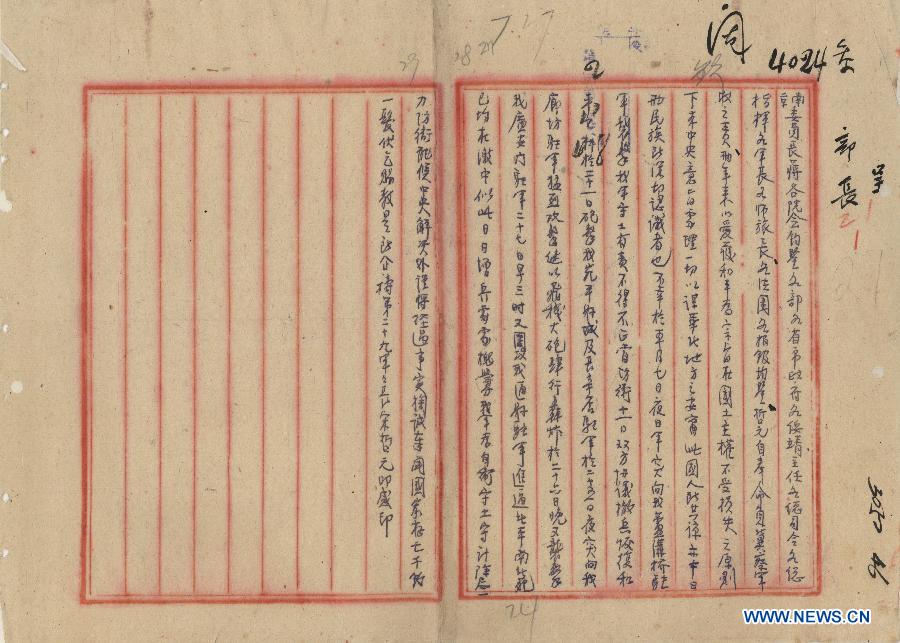 閱
4024
部長
呈
7.17
南京委員長蔣各院會鈞鑒各部各省市政府各綏靖主任各總司令各總
指揮各軍長各師旅長各法團各報館均鑒哲元自奉命負冀察軍
政之責兩年來以愛護和平為宗旨在國土主權不受損失之原則
下本中央意旨處理一切以謀華北地方之安寧此國人所共諒亦中日
兩民族所深切認識者也不幸於本月七日夜日軍突向我盧溝橋駐
軍襲擊我軍守土有責不得不正當防衛十一日双方協議撤兵恢復和
平不料於二十一日砲擊我宛平縣城及長辛店駐軍於二十五日夜突向我
廊坊駐軍猛烈攻擊繼以飛機大砲肆行轟炸於二十六日晚又襲擊
我廣安門駐軍二十七日早三時又圍攻我通縣駐軍進逼北平南北苑
已均在激戰中似此日日增兵處處挑釁我軍為自衛守土計除盡
力防衛聽候中央解決外謹將經過事實掬誠奉聞國家存亡千鈞
一髮伏乞賜教是所企禱第二十九軍軍長宋哲元叩感印
24
WWW.NEWS.CN